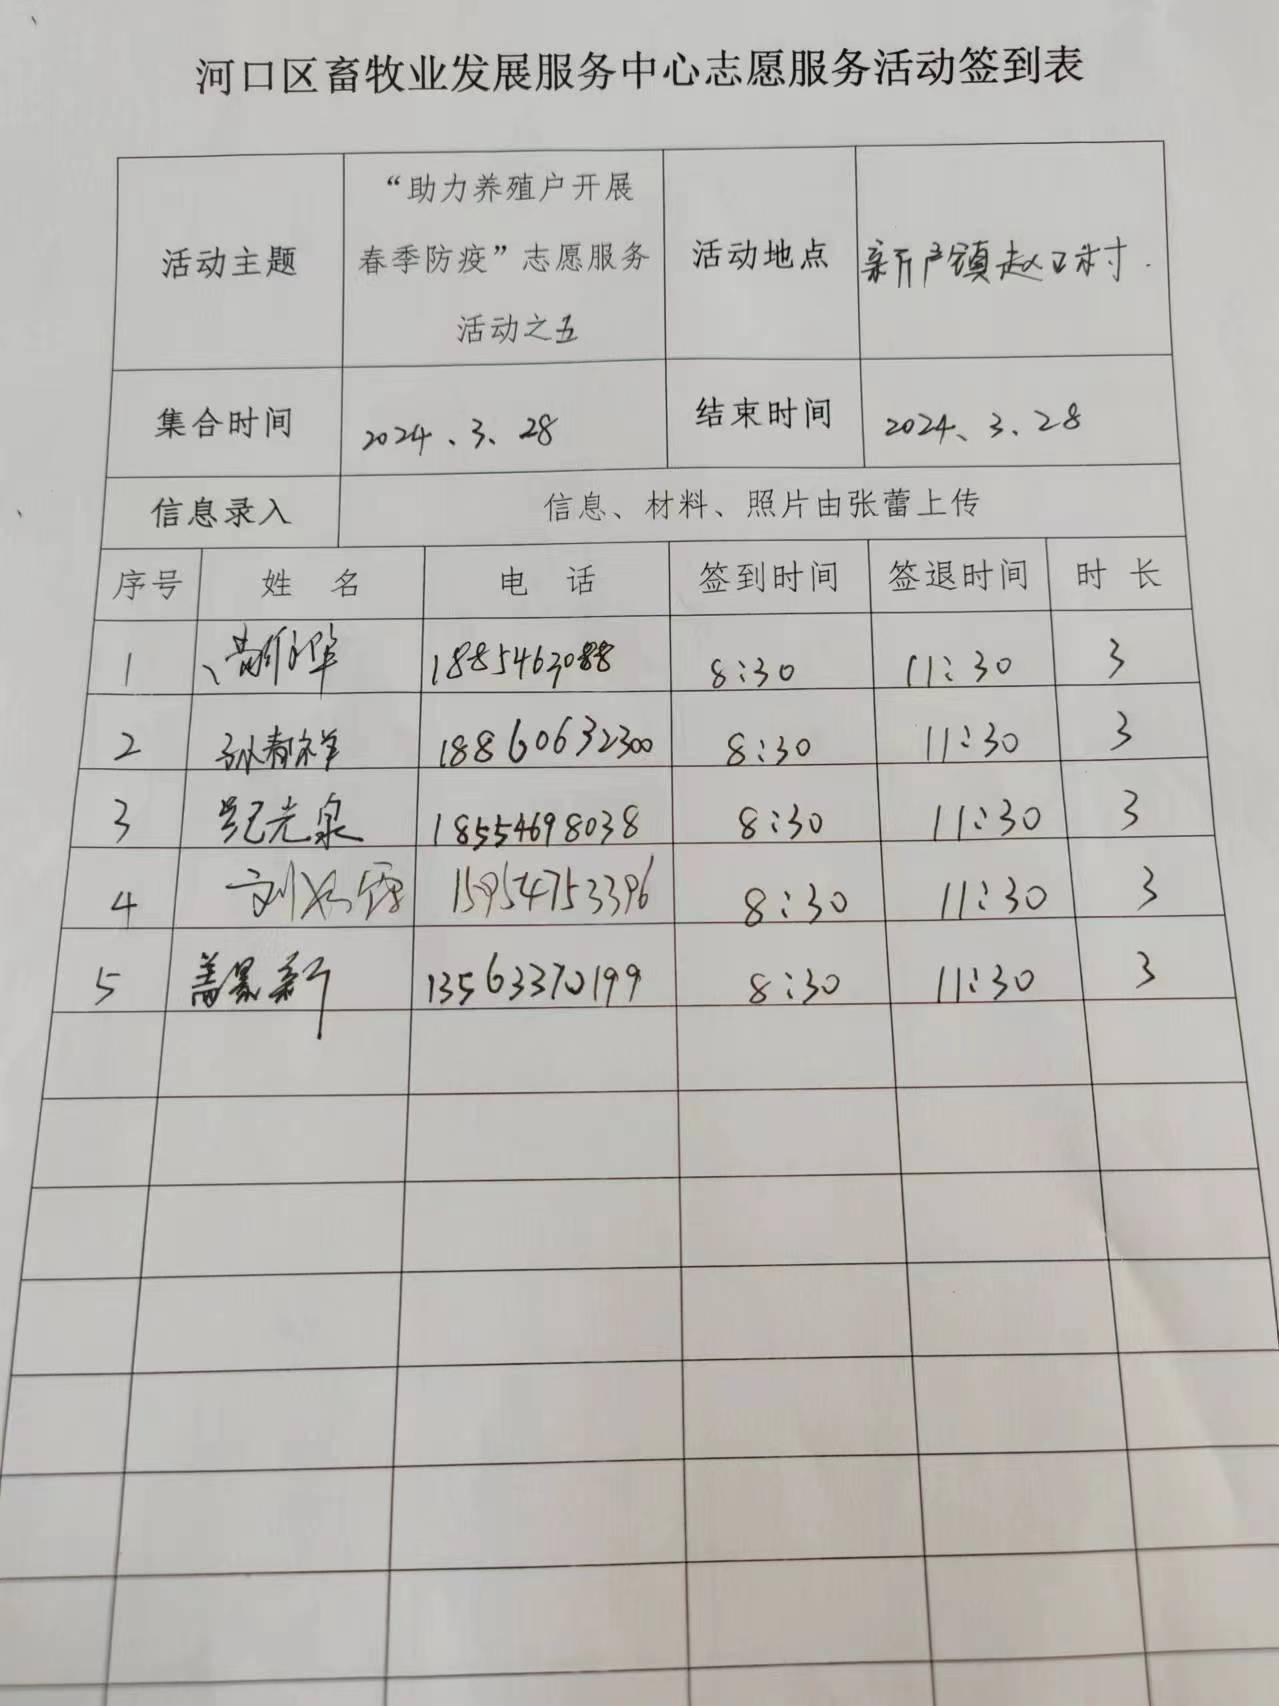 河口区畜牧业发展服务中心志愿服务活动签到表
活动主题
“助力养殖户开展
春季防疫”志愿服务
活动之五
活动地点
新户镇赵口村
集合时间 2024、3、28 结束时间 2024、3、28
信息录入 信息、材料、照片由张蕾上传
序号 姓名 电话 签到时间 签退时间 时长
1 1885463088 8:30 11:30 3
2 18860632300 8:30 11:30 3
3 纪光泉 18554698038 8:30 11:30 3
4 15954753396 8:30 11:30 3
5 盖景新 13563370199 8:30 11:30 3